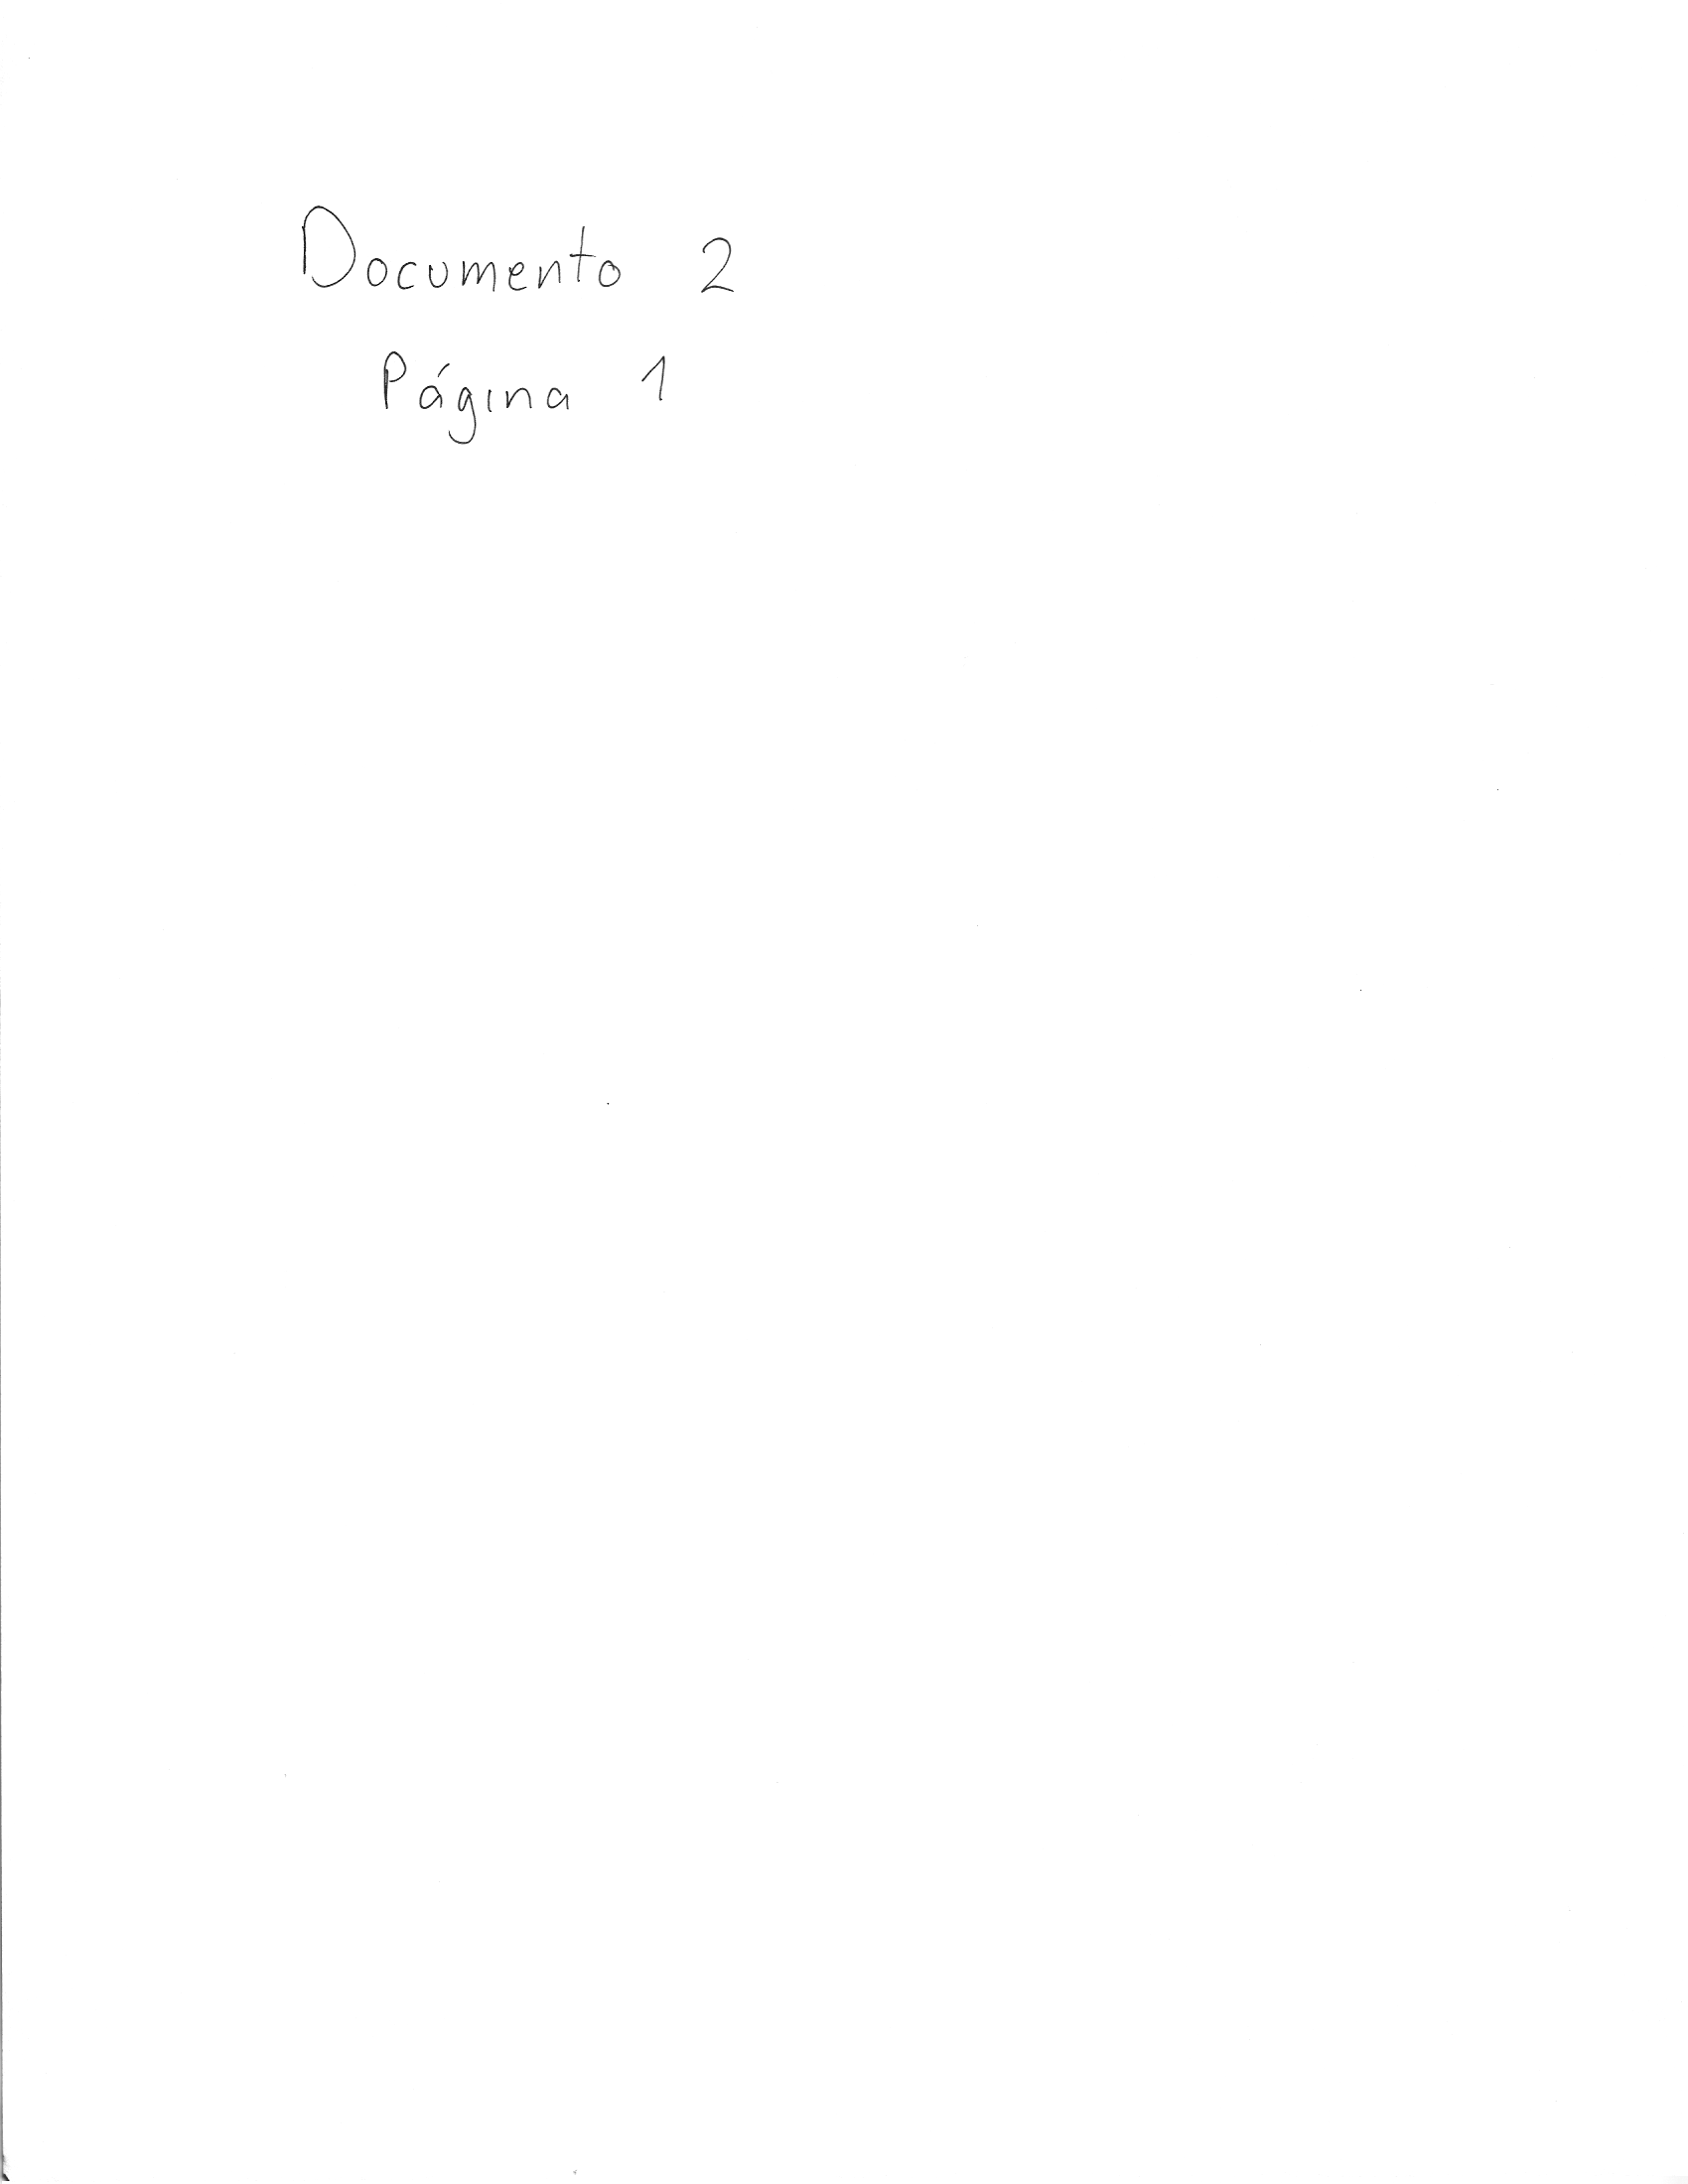 Documento 2
Página 1